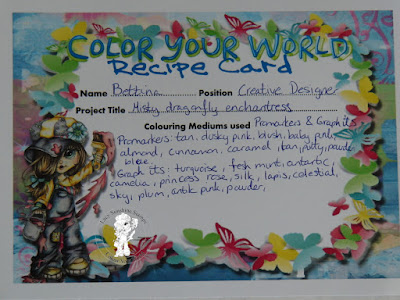 COLOR YOUR WORLD
Recipe Card
Name Bettina Position Creative Designer
Project Title Misty dragonfly enchantress
Colouring Mediums used Promarkers & Graph'its
Promarkers: tan, dusky pink, blush, baby pink,
almond, cinnamon, caramel, tan, putty, powder
blue.
Graph'its: turquoise, fesh mint, antartic,
camelia, princess rose, silk, lapis, celestial,
sky, plum, antik pink, powder,